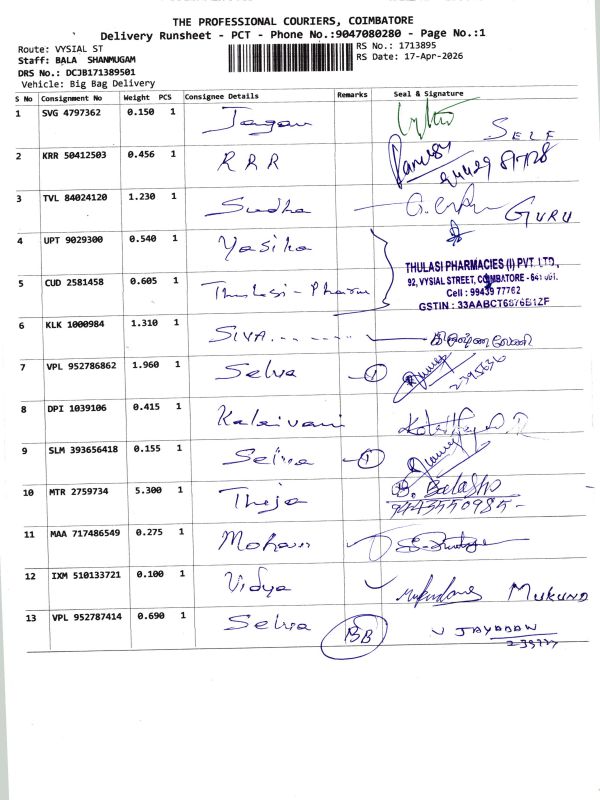 THE PROFESSIONAL COURIERS, COIMBATORE
Delivery Runsheet - PCT - Phone No.:9047080280 - Page No.:1
Route: VYSIAL ST
RS No.: 1713895
Staff: BALA SHANMUGAM
RS Date: 17-Apr-2026
DRS No.: DCJB171389501
Vehicle: Big Bag Delivery
S No Consignment No Weight PCS Consignee Details Remarks Seal & Signature
1 SVG 4797362 0.150 1 Jagan SELF
2 KRR 50412503 0.456 1 RRR
3 TVL 84024120 1.230 1 Sudha GURU
4 UPT 9029300 0.540 1 Yasika
THULASI PHARMACIES (I) PVT. LTD.,
92, VYSIAL STREET, COIMBATORE - 641 001.
5 CUD 2581458 0.605 1 Thulasi-Pharm
Cell : 99439 77762
GSTIN : 33AABCT6876B1ZF
6 KLK 1000984 1.310 1 SIVA.......
7 VPL 952786862 1.960 1 Selva 1
8 DPI 1039106 0.415 1 Kalaivani
9 SLM 393656418 0.155 1 Selva 1
10 MTR 2759734 5.300 1 Theja
11 MAA 717486549 0.275 1 Mohan
12 IXM 510133721 0.100 1 Vidya MUKUND
13 VPL 952787414 0.690 1 Selva BB